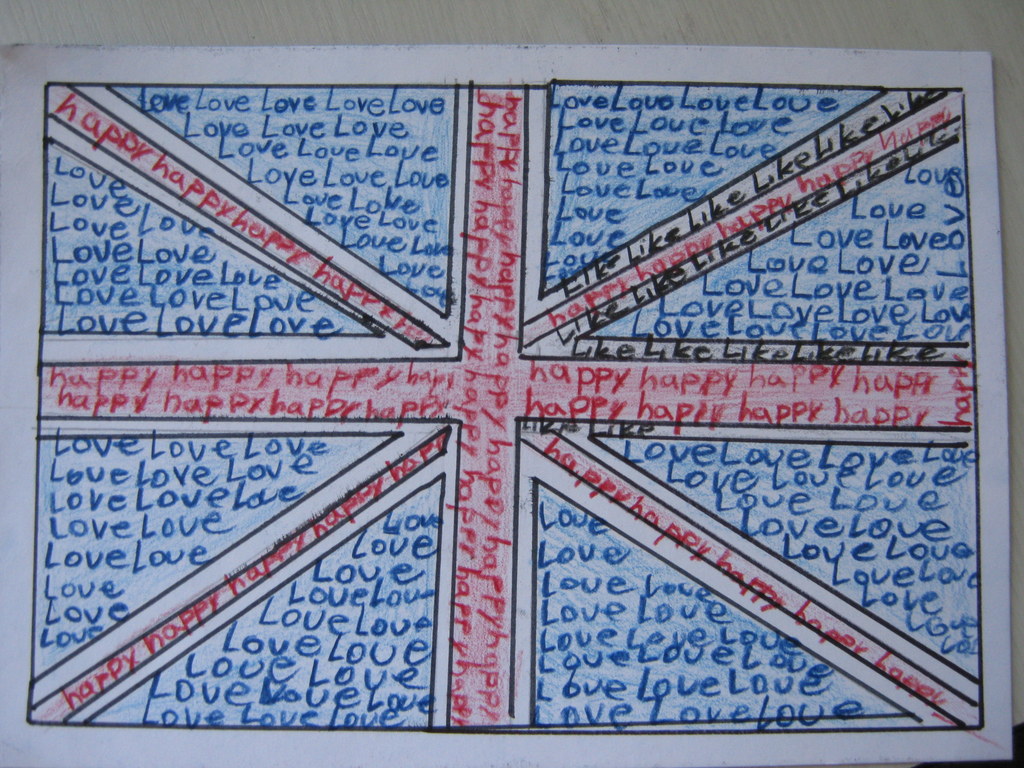 Love Love Love Love Love
Love Love Love
Love Love Love
Love Love Love
Love Love
Love Love
Love Love
Love
happy happy happy happy happy
Love
Love
Love Love
Love Love
Love Love Love
Love Love Love
Love Love Love
happy happy happy happy happy happy happy happy
happy happy happy happy happy happy happy happy
Love Love Love Love
Love Love Love
Love Love Love
Love Love
Love Love
Love
Love
Love
Like Like Like Like Like Like Like
happy happy happy happy happy
Like Like Like Like Like Like
Love
Love
Love Love
Love Love
Love Love Love
Love Love Love Love
Like Like Like Like Like
happy happy happy happy
happy happy happy happy
happy happy happy happy
happy happy happy happy
happy
Like Like
Love Love Love
Love Love Love
Love Love Love
Love Love
Love Love
Love
Love
Love
happy happy happy happy happy
Love
Love
Love
Love Love
Love Love
Love Love
Love Love
Love Love Love
Love Love Love
Love Love Love Love
Love Love Love
Love Love
Love Love
Love Love
Love Love
Love
Love
happy happy happy happy happy
Love
Love
Love Love
Love Love
Love Love Love
Love Love Love
Love Love Love
Love Love Love